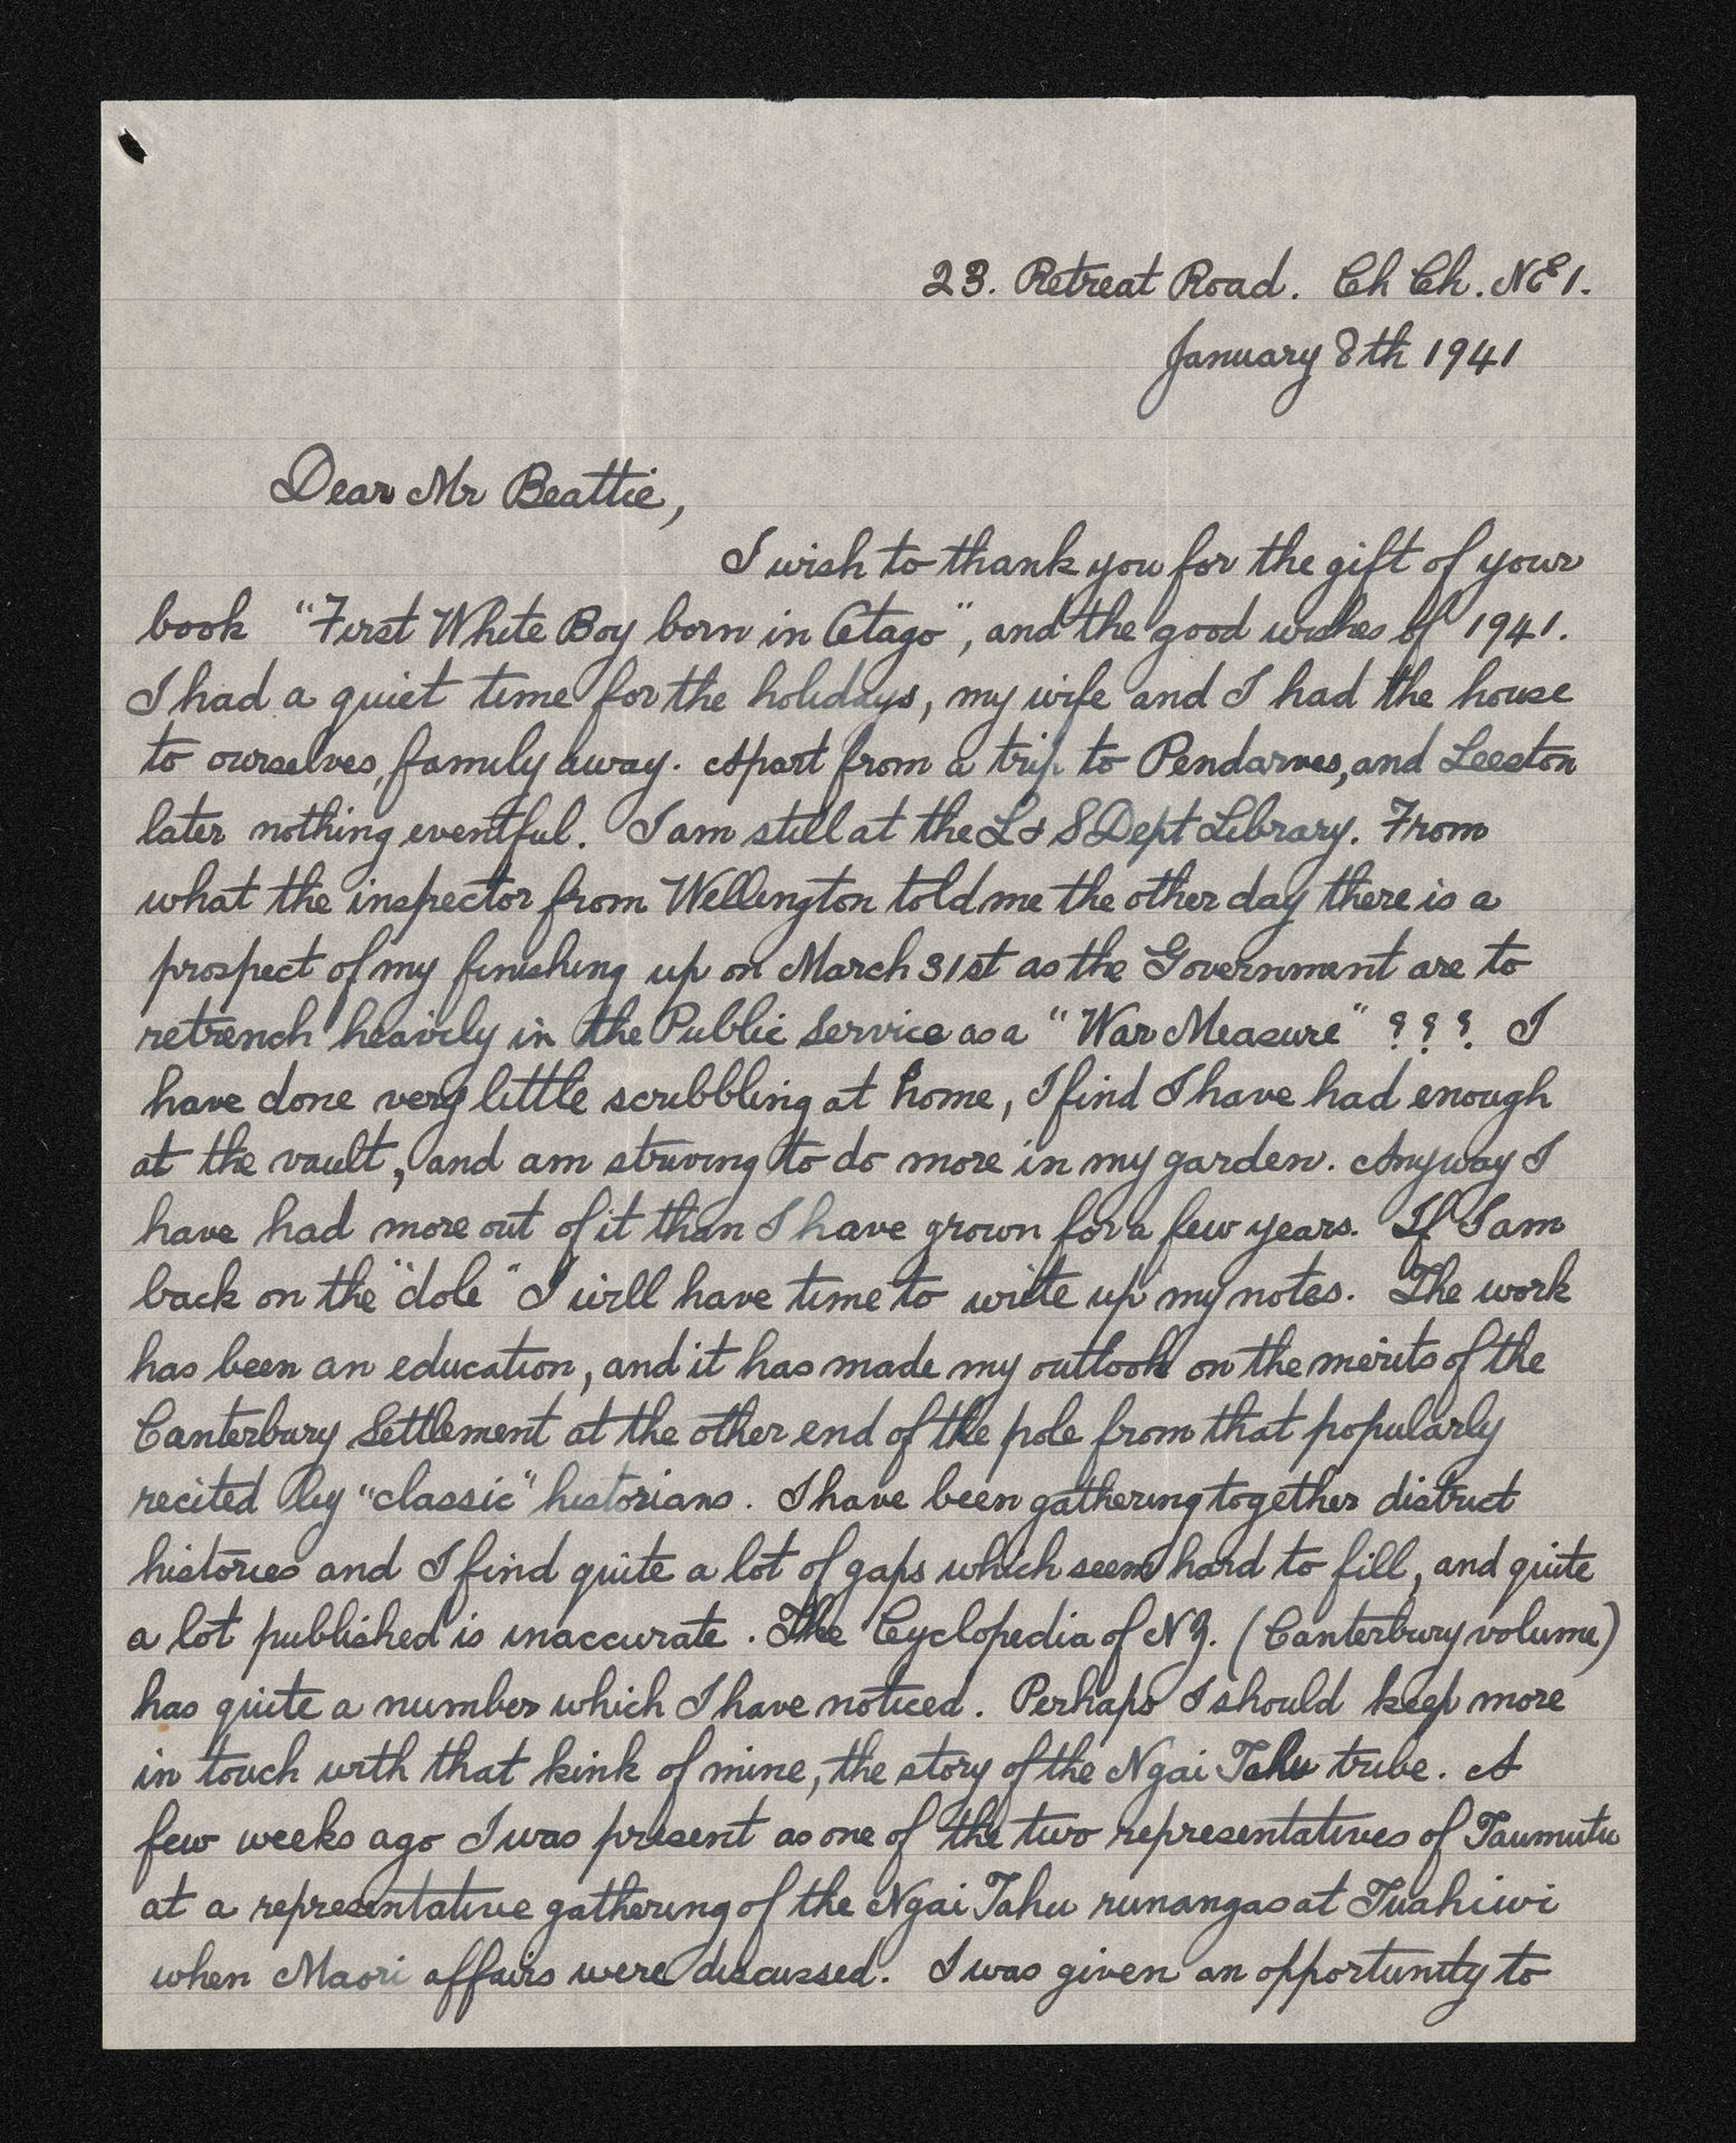 23. Retreat Road. Ch Ch. NE1.
January 8th 1941
Dear Mr Beattie,
I wish to thank you for the gift of your
book "First White Boy born in Otago", and the good wishes of 1941.
I had a quiet time for the holidays, my wife and I had the house
to ourselves, family away. Apart from a trip to Pendarves, and Leeston
later nothing eventful. I am still at the L & S Dept Library. From
what the inspector from Wellington told me the other day there is a
prospect of my finishing up on March 31st as the Government are to
retrench heavily in the Public Service as a "War Measure" ??? I
have done very little scribbling at home, I find I have had enough
at the vault, and am striving to do more in my garden. Anyway I
have had more out of it than I have grown for a few years. If I am
back on the "dole" I will have time to write up my notes. The work
has been an education, and it has made my outlook on the merits of the
Canterbury Settlement at the other end of the pole from that popularly
recited by "classic" historians. I have been gathering together district
histories and I find quite a lot of gaps which seem hard to fill, and quite
a lot published is inaccurate. The Cyclopedia of NZ. (Canterbury volume)
has quite a number which I have noticed. Perhaps I should keep more
in touch with that kink of mine, the story of the Ngai Tahu tribe. A
few weeks ago I was present as one of the two representatives of Taumutu
at a representative gathering of the Ngai Tahu runangas at Tuahiwi
when Maori affairs were discussed. I was given an opportunity to